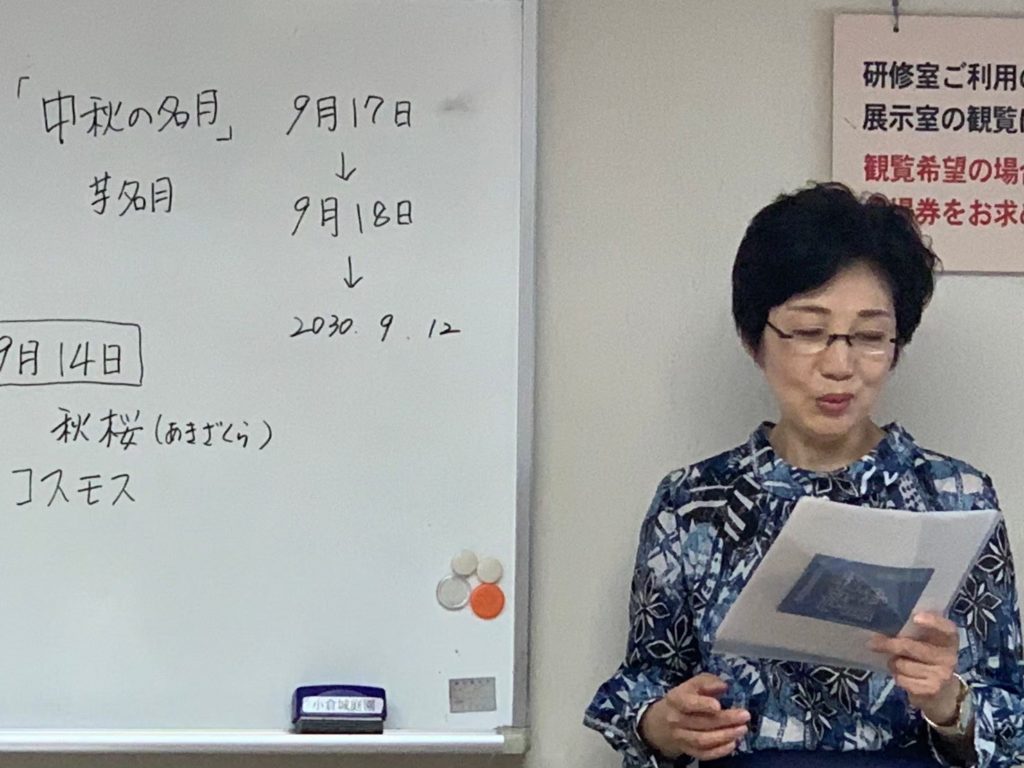 「中秋の名月」 9月17日
↓
芋名月 9月18日
↓
2030. 9. 12
9月14日
秋桜(あきざくら)
コスモス
小倉城庭園
研修室ご利用の
展示室の観覧は
観覧希望の場合
場券をお求め